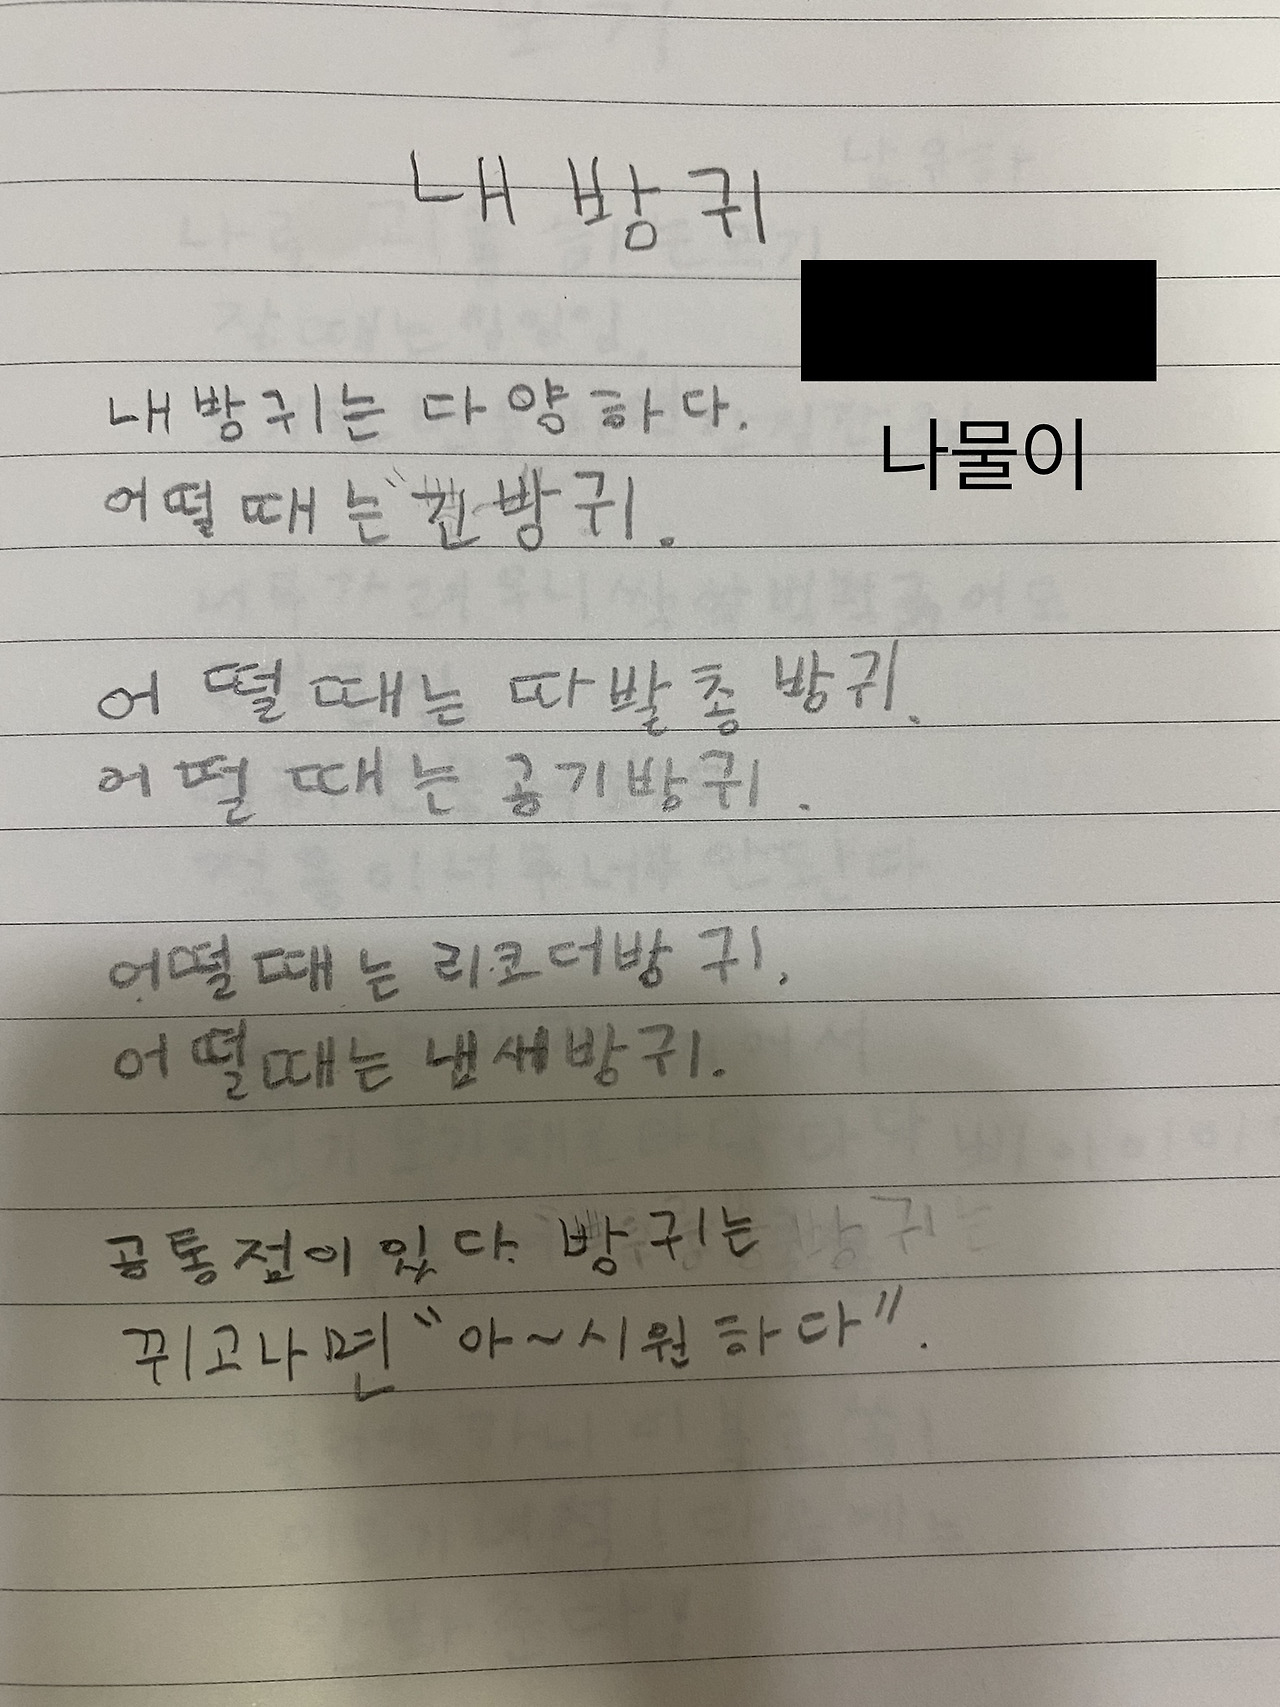 내 방귀
나물이
내 방귀는 다양하다.
어떨 때는 긴 방귀.
어떨 때는 따발총 방귀.
어떨 때는 공기방귀.
어떨 때는 리코더방귀.
어떨 때는 냄새방귀.
공통점이 있다. 방귀는
뀌고나면 "아~시원하다".